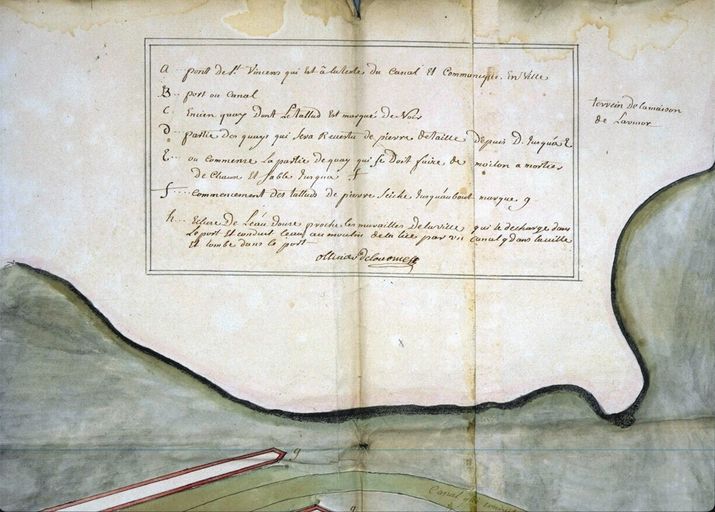 A pont de St. Vincens qui est à la teste du Canal et Communique En Ville
B port ou Canal
C Encien quay dont le tallud est marqué de Noir
D partie des quays qui sera Revestu de pierre de taille depuis D. Jusqu'a E
E ou commense la partie de quay qui se doit faire de moilon a mortier
de Chaux et sable Jusqu'a f
f commencement des talluds de pierre seiche Jusqu'au bout marque g
h Ecluse de L'eau douse proche les murailles de la ville qui se decharge dans
Le port et conduit l'eau au moulin de la lice par un canal q dans la ville
et tombe dans le port
terrein de la maison
de Larmor
g
Canal qui conduit
g